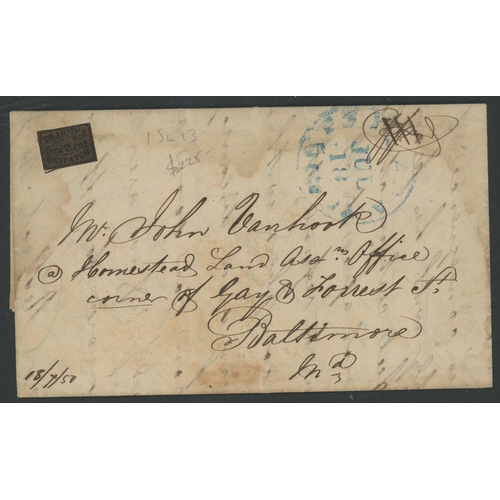 15L13
$225-
JUL
18
Mr. John Vanhook
@ Homestead Land Assn Office
corner of Gay & Forrest St.
Baltimore
Md
18/7/50